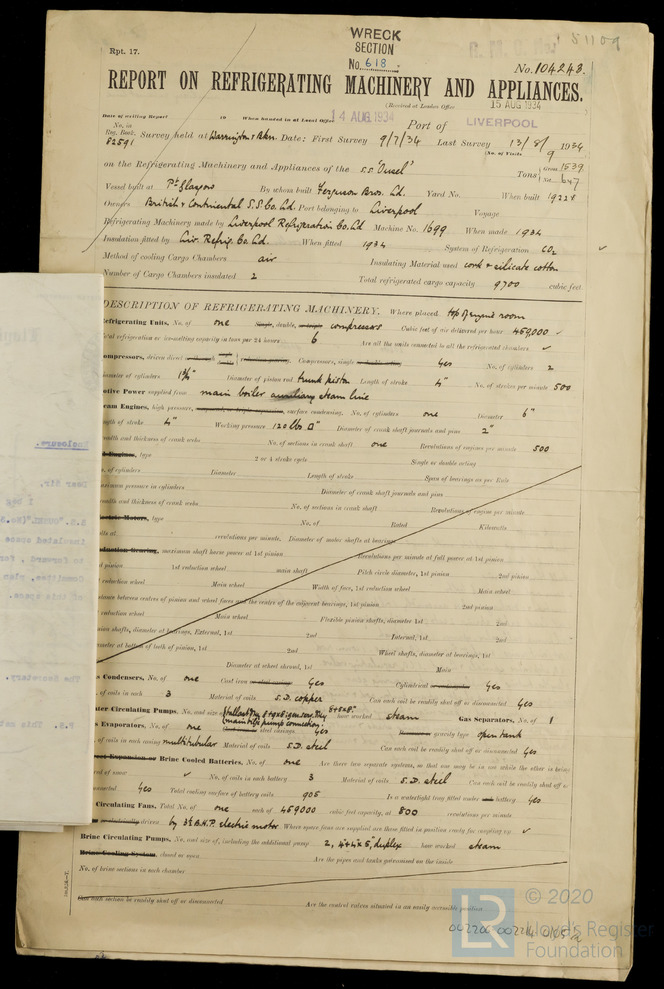 WRECK
SECTION
No. 618
Rpt. 17.
No. 104243.
REPORT ON REFRIGERATING MACHINERY AND APPLIANCES.
(Received at London Office 15 AUG 1934
Date of writing Report 19 When handed in at Local Office 14 AUG 1934 Port of LIVERPOOL
No. in Reg. Book. Survey held at Date: First Survey 9/7/34 Last Survey 13/8/1934
82591 (No. of Visits 9
on the Refrigerating Machinery and Appliances of the s.s. "Ousel" Tons Gross 1539
Net 647
Vessel built at Pt. Glasgow By whom built Ferguson Bros. Ld. Yard No. When built 1922
Owners British & Continental S.S. Co. Ld. Port belonging to Liverpool Voyage
Refrigerating Machinery made by Liverpool Refrigeration Co. Ld Machine No. 1699 When made 1934
Insulation fitted by Liv. Refrig. Co. Ld. When fitted 1934 System of Refrigeration CO2
Method of cooling Cargo Chambers air Insulating Material used cork & silicate cotton
Number of Cargo Chambers insulated 2 Total refrigerated cargo capacity 9700 cubic feet.
DESCRIPTION OF REFRIGERATING MACHINERY. Where placed top of engine room
Refrigerating Units, No. of one Single, double, compressors Cubic feet of air delivered per hour 459,000
refrigeration or ice-melting capacity in tons per 24 hours 6 Are all the units connected to all the refrigerated chambers
Compressors, driven direct Compressors, single yes No. of cylinders 2
diameter of cylinders Diameter of piston rod trunk piston Length of stroke 4" No. of strokes per minute 500
Motive Power supplied from main boiler auxiliary steam line
Steam Engines, high pressure, surface condensing. No. of cylinders one Diameter 6"
length of stroke 4" Working pressure 120 lbs □" Diameter of crank shaft journals and pins 2"
breadth and thickness of crank webs No. of sections in crank shaft one Revolutions of engines per minute 500
Engines, type 2 or 4 stroke cycle Single or double acting
No. of cylinders Diameter Length of stroke Span of bearings as per Rule
maximum pressure in cylinders Diameter of crank shaft journals and pins
breadth and thickness of crank webs No. of sections in crank shaft Revolutions of engine per minute
Electric Motors, type No. of Rated Kilowatts
Volts at revolutions per minute. Diameter of motor shafts at bearings
Reduction Gearing, maximum shaft horse power at 1st pinion Revolutions per minute at full power at 1st pinion
pinion 1st reduction wheel main shaft Pitch circle diameter, 1st pinion 2nd pinion
reduction wheel Main wheel Width of face, 1st reduction wheel Main wheel
distance between centres of pinion and wheel faces and the centre of the adjacent bearings, 1st pinion 2nd pinion
reduction wheel Main wheel Flexible pinion shafts, diameter 1st 2nd
pinion shafts, diameter at bearings, External, 1st 2nd Internal, 1st 2nd
diameter at bottom of teeth of pinion, 1st 2nd Wheel shafts, diameter at bearings, 1st
Diameter at wheel shroud, 1st Main
Gas Condensers, No. of one Cast iron yes Cylindrical yes
No. of coils in each 3 Material of coils S.D. copper Can each coil be readily shut off or disconnected yes
Water Circulating Pumps, No. and size of how worked steam Gas Separators, No. of 1
Gas Evaporators, No. of one steel casings yes gravity type open tank
No. of coils in each casing multitubular Material of coils S.D. steel Can each coil be readily shut off or disconnected yes
Direct Expansion or Brine Cooled Batteries, No. of one Are there two separate systems, so that one may be in use while the other is being
No. of coils in each battery 3 Material of coils S.D. steel Can each coil be readily shut off or
disconnected yes Total cooling surface of battery coils 905 Is a watertight tray fitted under battery yes
Circulating Fans, Total No. of one each of 459000 cubic feet capacity, at 800 revolutions per minute
driven by 3½ B.H.P. electric motor Where spare fans are supplied are these fitted in position ready for coupling up
Brine Circulating Pumps, No. and size of, including the additional pump 2, 4 x 4 x 5, duplex how worked steam
Brine Cooling System, closed or open Are the pipes and tanks galvanised on the inside
No. of brine sections in each chamber
Can each section be readily shut off or disconnected Are the control valves situated in an easily accessible position
© 2020
LR Lloyd's Register
Foundation
Enclosure.
Dear Sir,
The Secretary